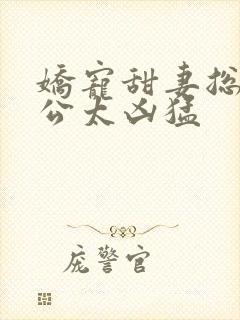 嬌寵甜妻总
公太凶猛
庞警官